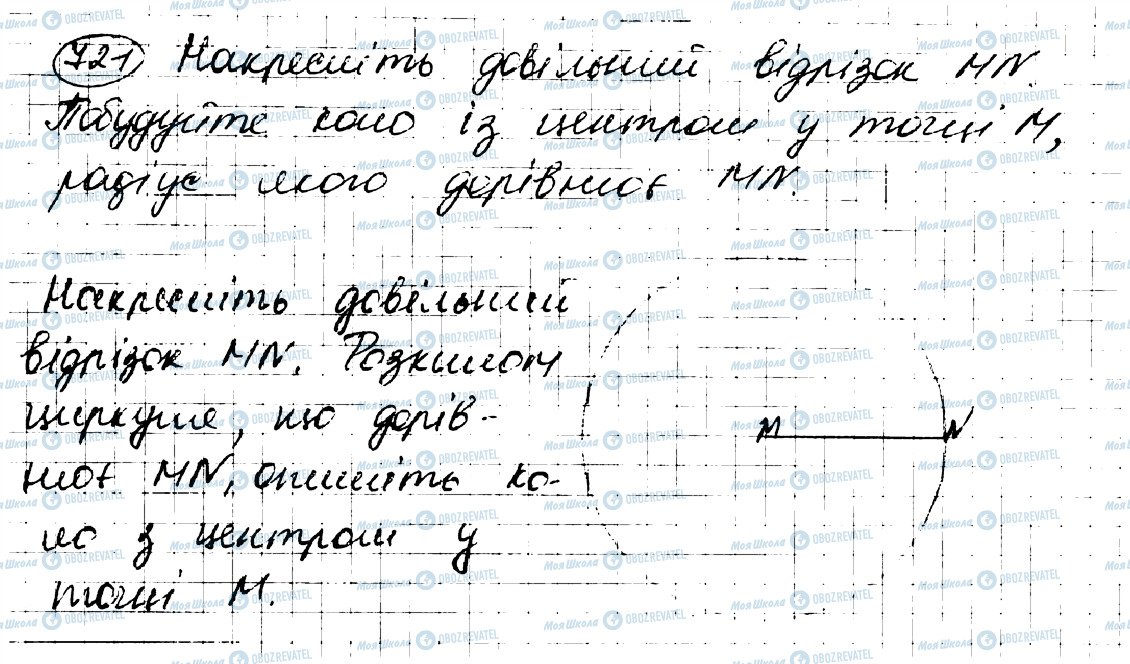 721 Накресліть довільний відрізок MN
Побудуйте коло із центром у точці M,
радіус якого дорівнює MN.
Накресліть довільний
відрізок MN. Розхилом
циркуля, що дорів-
нює MN, опишіть ко-
ло з центром у
точці M.
M N
МояШкола OBOZREVATEL